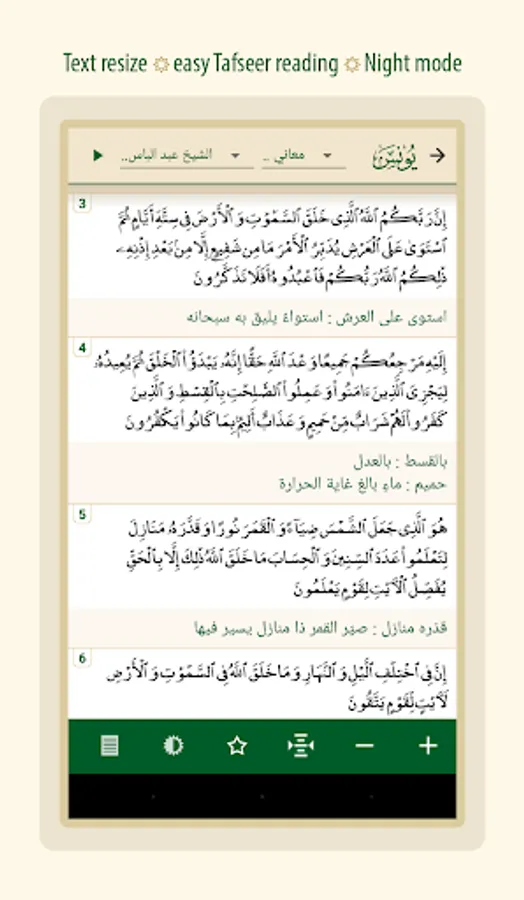 Text resize easy Tafseer reading Night mode
يُونُسَ معاني .. الشيخ عبد الباس..
3
إِنَّ رَبَّكُمُ ٱللَّهُ ٱلَّذِى خَلَقَ ٱلسَّمَٰوَٰتِ وَٱلْأَرْضَ فِى سِتَّةِ أَيَّامٍ ثُمَّ
ٱسْتَوَىٰ عَلَى ٱلْعَرْشِ يُدَبِّرُ ٱلْأَمْرَ مَا مِن شَفِيعٍ إِلَّا مِنۢ بَعْدِ إِذْنِهِۦ
ذَٰلِكُمُ ٱللَّهُ رَبُّكُمْ فَٱعْبُدُوهُ أَفَلَا تَذَكَّرُونَ
استوى على العرش : استواءً يليق به سبحانه
4
إِلَيْهِ مَرْجِعُكُمْ جَمِيعًا وَعْدَ ٱللَّهِ حَقًّا إِنَّهُۥ يَبْدَؤُا۟ ٱلْخَلْقَ ثُمَّ يُعِيدُهُۥ
لِيَجْزِىَ ٱلَّذِينَ ءَامَنُوا۟ وَعَمِلُوا۟ ٱلصَّٰلِحَٰتِ بِٱلْقِسْطِ وَٱلَّذِينَ
كَفَرُوا۟ لَهُمْ شَرَابٌ مِّنْ حَمِيمٍ وَعَذَابٌ أَلِيمٌۢ بِمَا كَانُوا۟ يَكْفُرُونَ
بالقسط : بالعدل
حميم : ماءٍ بالغٍ غاية الحرارة
5
هُوَ ٱلَّذِى جَعَلَ ٱلشَّمْسَ ضِيَآءً وَٱلْقَمَرَ نُورًا وَقَدَّرَهُۥ مَنَازِلَ
لِتَعْلَمُوا۟ عَدَدَ ٱلسِّنِينَ وَٱلْحِسَابَ مَا خَلَقَ ٱللَّهُ ذَٰلِكَ إِلَّا بِٱلْحَقِّ
يُفَصِّلُ ٱلْءَايَٰتِ لِقَوْمٍ يَعْلَمُونَ
قدّره منازل : صيّر القمر ذا منازل يسير فيها
6
إِنَّ فِى ٱخْتِلَٰفِ ٱلَّيْلِ وَٱلنَّهَارِ وَمَا خَلَقَ ٱللَّهُ فِى ٱلسَّمَٰوَٰتِ وَٱلْأَرْضِ
لَءَايَٰتٍ لِّقَوْمٍ يَتَّقُونَ